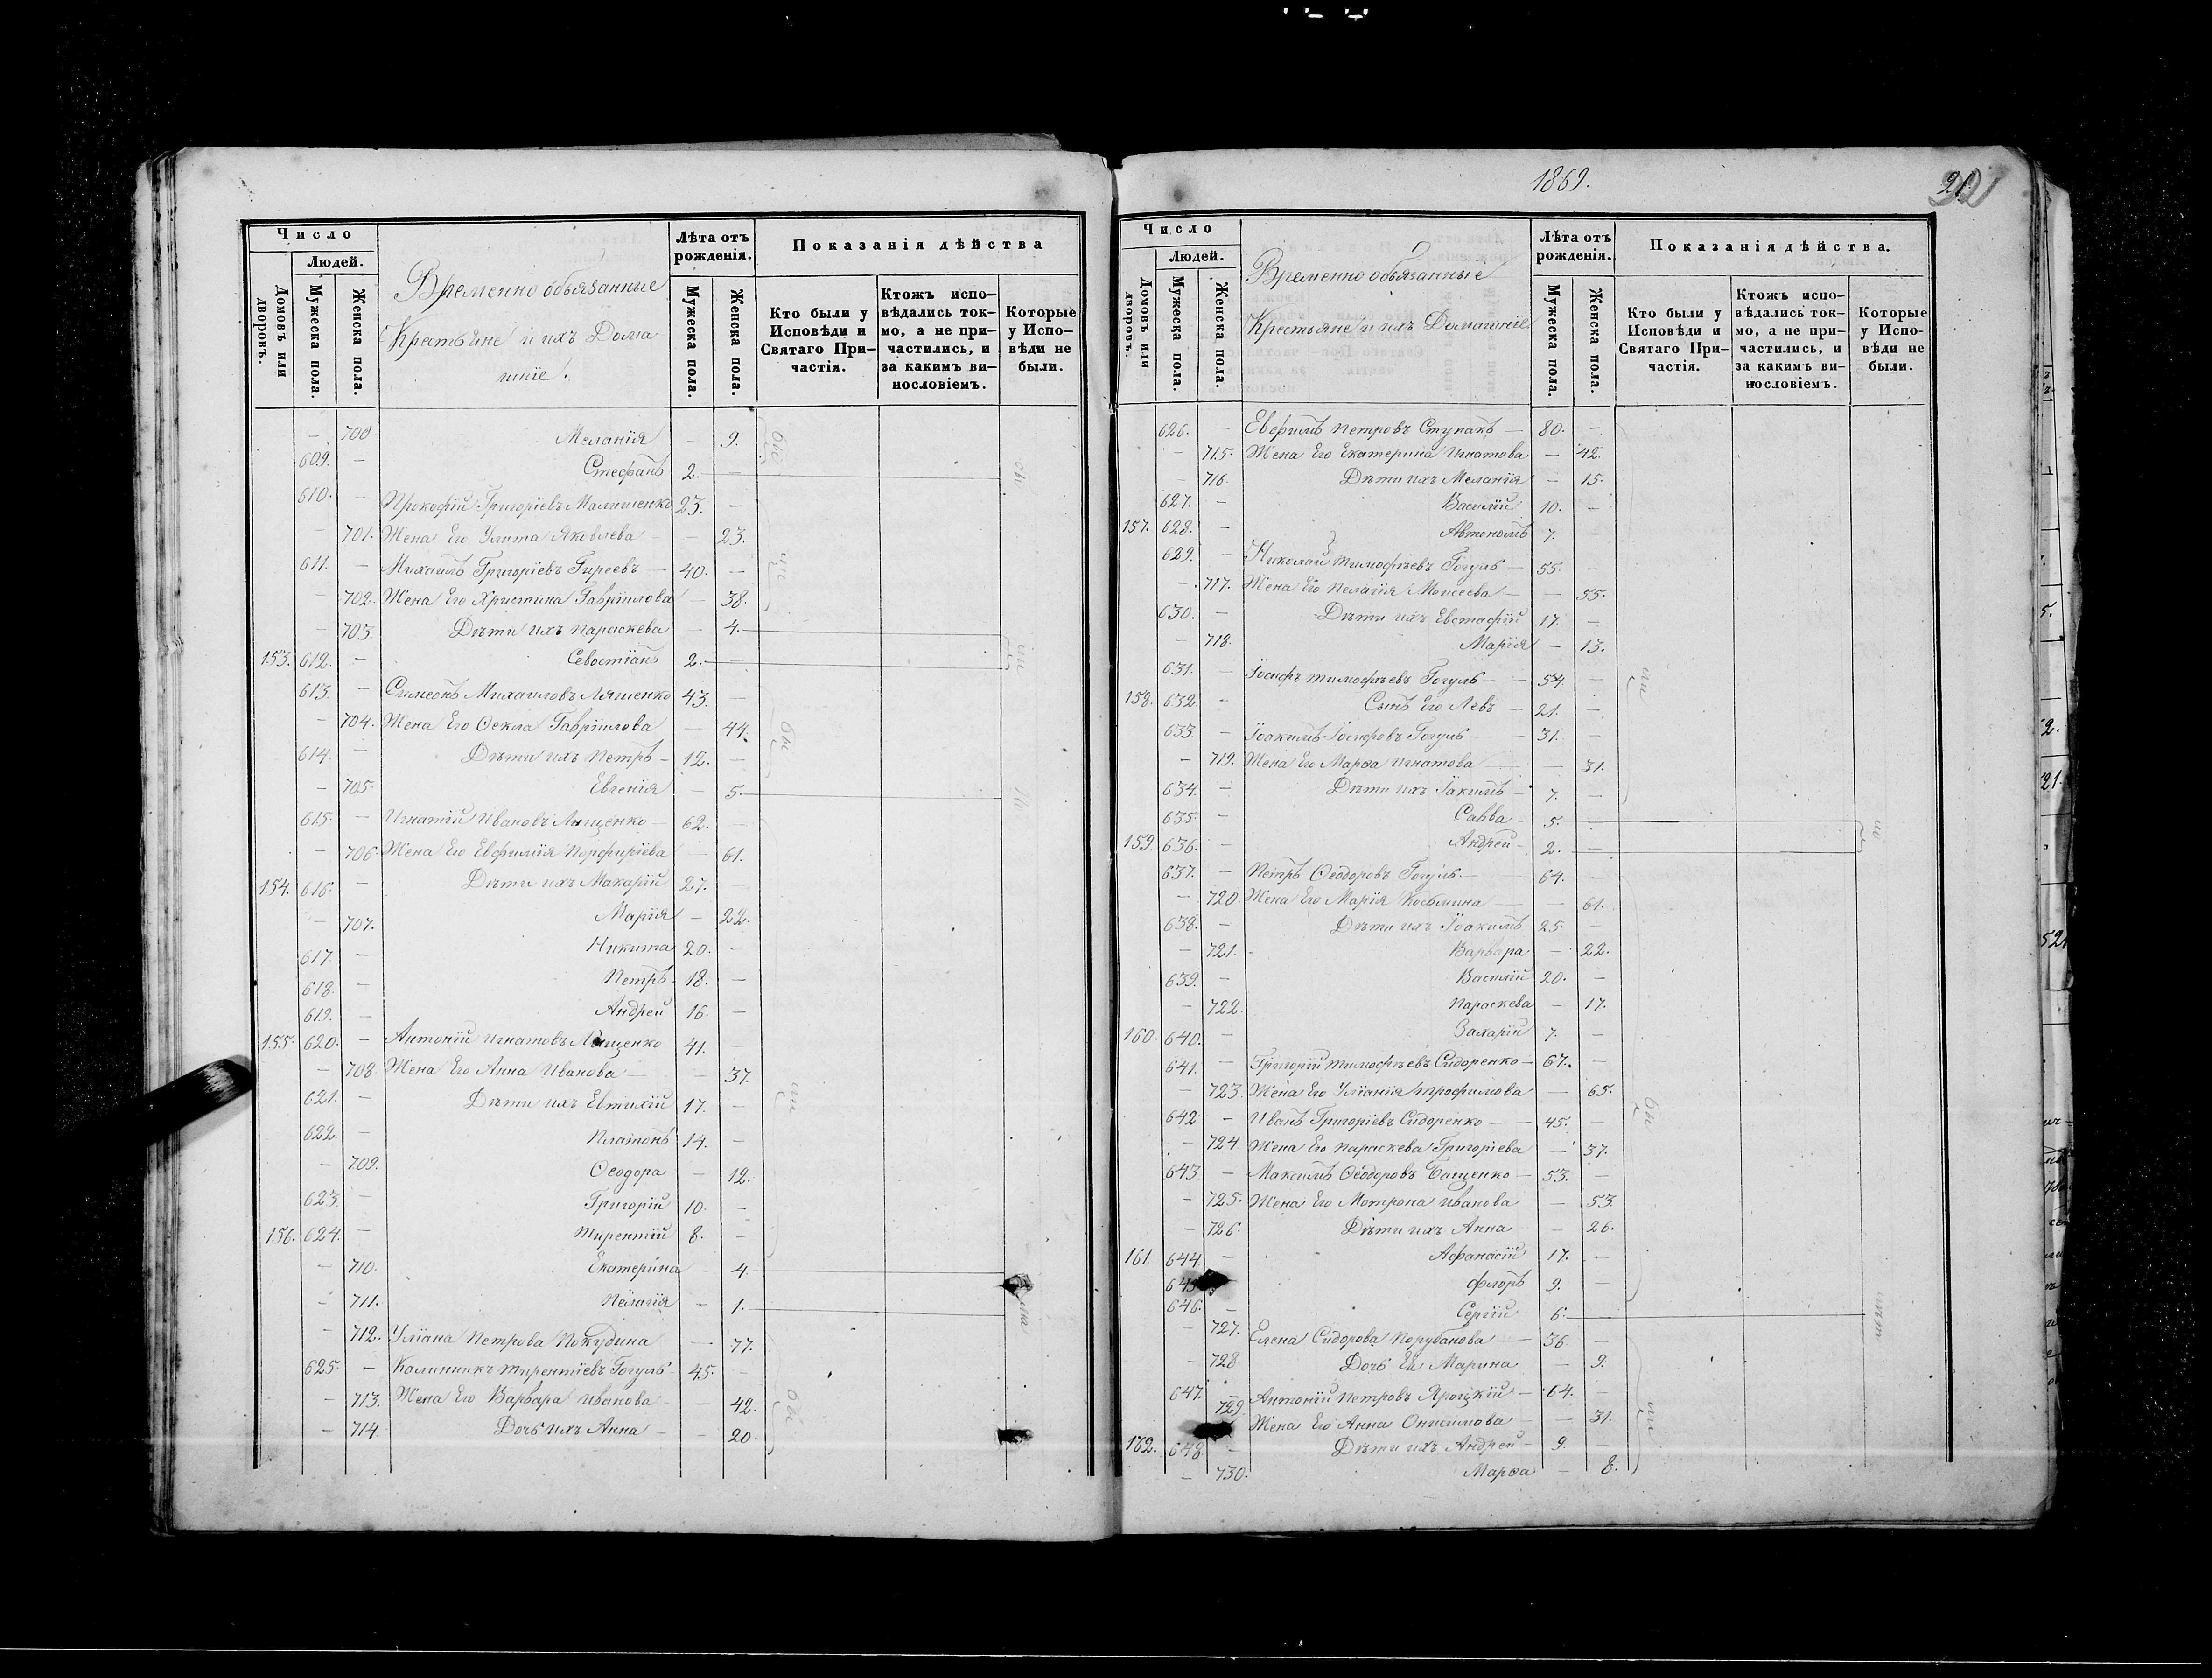 Число
Людей.
Домовъ или дворовъ.
Мужеска пола.
Женска пола.
Временно обязанные
Крестьяне и ихъ Дома
шніе.
Лѣта отъ рожденія.
Мужеска пола.
Женска пола.
Показанія дѣйства
Кто были у Исповѣди и Святаго Причастія.
Ктожъ исповѣдались токмо, а не причастились, и за какимъ винословіемъ.
Которые у Исповѣди не были.
– 700 Меланія – 9.
609. – Стефанъ 2. –
610. – Прокофій Григоріевъ Малишенко 23. –
– 701. Жена Его Улита Яковлева – 23.
611. – Михаилъ Григоріевъ Гиреевъ 40. –
– 702. Жена Его Христина Гавріилова – 38.
– 703. Дѣти ихъ Параскева – 4.
153. 612. – Севостіанъ 2. –
613. – Симеонъ Михаиловъ Ляшенко 43. –
– 704. Жена Его Ѳекла Гавріилова – 44.
614. – Дѣти ихъ Петръ – 12. –
– 705. Евгенія – 5.
615. – Игнатій Ивановъ Лященко – 62. –
– 706. Жена Его Евфимія Порфиріева – 61.
154. 616. – Дѣти ихъ Макарій 27. –
– 707. Марія – 22.
617 – Никита 20. –
618. – Петръ 18. –
619. – Андрей 16. –
155. 620. – Антоній Игнатовъ Лященко 41. –
– 708. Жена Его Анна Иванова – 37.
621. – Дѣти ихъ Евтихій 17. –
622. – Платонъ 14. –
– 709. Ѳеодора – 12.
623. – Григорій 10. –
156. 624. – Тирентій 8. –
– 710. Екатерина – 4.
– 711. Пелагія – 1.
– 712. Уліана Петрова Покудина – 77.
625. – Калинникъ Тирентіевъ Гогуль 45. –
– 713. Жена Его Варвара Иванова – 42.
– 714 Дочь ихъ Анна – 20.
1869.
Число
Людей.
Домовъ или дворовъ.
Мужеска пола.
Женска пола.
Временно обязанные
Крестьяне и ихъ Домашніе
Лѣта отъ рожденія.
Мужеска пола.
Женска пола.
Показанія дѣйства.
Кто были у Исповѣди и Святаго Причастія.
Ктожъ исповѣдались токмо, а не причастились, и за какимъ винословіемъ.
Которые у Исповѣди не были.
626. – Евфимъ Петровъ Ступакъ – 80. –
– 715. Жена Его Екатерина Игнатова – 42.
– 716. Дѣти ихъ Меланія – 15.
627. – Василій 10. –
157. 628. – Автономъ 7. –
629. – Николай Тимофѣевъ Гогуль – 55. –
– 717. Жена Его Пелагія Моисеева – 55.
630. – Дѣти ихъ Евстафій 17. –
– 718. Марія – 13.
631. – Іосифъ Тимофѣевъ Гогуль – 54. –
158. 632. – Сынъ Его Левъ – 21. –
633. – Іоакимъ Іосифовъ Гогуль – 31. –
– 719. Жена Его Марѳа Игнатова – 31.
634. – Дѣти ихъ Іакимъ – 7. –
635. – Савва – 5. –
159. 636. – Андрей – 2. –
637. – Петръ Ѳеодоровъ Гогуль – 64. –
– 720. Жена Его Марія Космина – 61.
638. – Дѣти ихъ Іоакимъ 25. –
– 721. Варвара – 22.
639. – Василій 20. –
– 722. Параскева – 17.
160. 640. – Захарій 7. –
641. – Григорій Тимофѣевъ Сидоренко – 67. –
– 723. Жена Его Уліанія Трофимова – 65.
642 – Иванъ Григоріевъ Сидоренко – 45. –
– 724 Жена Его Параскева Григоріева – 37.
643 – Максимъ Ѳеодоровъ Бащенко – 53. –
– 725. Жена Его Мотрона Иванова – 53.
– 726. Дѣти ихъ Анна – 26.
161. 644 – Афанасій 17. –
645 Флоръ 9. –
646. – Сергій 6.
– 727. Елена Сидорова Порубанова – 36. –
– 728. Дочь Ея Марина – 9.
647. – Антоній Петровъ Яроцкій – 64. –
729 Жена Его Анна Онисимова – 31.
162. 648 – Дѣти ихъ Андрей – 9. –
– 730. Марѳа – 8.